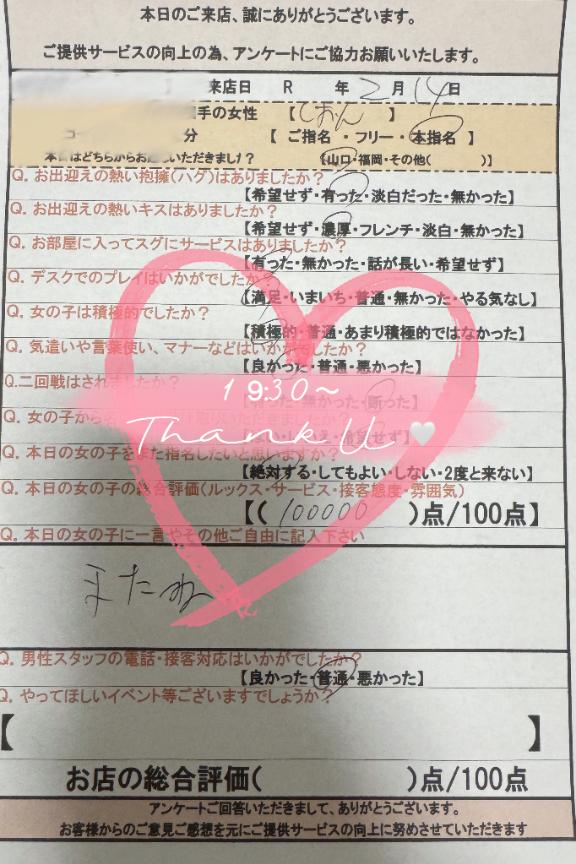 本日のご来店、誠にありがとうございます。
ご提供サービスの向上の為、アンケートにご協力お願いいたします。
来店日 R 年 2 月 14 日
手の女性 【しおん】
分 【 ご指名 ・ フリー ・ 本指名 】
本日はどちらからお越しいただきましたか? 【山口・福岡・その他( )】
Q. お出迎えの熱い抱擁(ハグ)はありましたか?
【希望せず・有った・淡白だった・無かった】
Q. お出迎えの熱いキスはありましたか?
【希望せず・濃厚・フレンチ・淡白・無かった】
Q. お部屋に入ってスグにサービスはありましたか?
【有った・無かった・話が長い・希望せず】
Q. デスクでのプレイはいかがでしたか?
【満足・いまいち・普通・無かった・やる気なし】
Q. 女の子は積極的でしたか?
【積極的・普通・あまり積極的ではなかった】
Q. 気遣いや言葉使い、マナーなどはいかがでしたか?
【良かった・普通・悪かった】
Q.二回戦はされましたか?
【有った・無かった・断った】
19:30~
Q. 女の子から
Thank U
希望せず】
Q. 本日の女の子をまた指名したいと思いますか?
【絶対する・してもよい・しない・2度と来ない】
Q. 本日の女の子の総合評価(ルックス・サービス・接客態度・雰囲気)
【( 100000 )点/100点】
Q. 本日の女の子に一言やその他ご自由に記入下さい
またね
Q. 男性スタッフの電話・接客対応はいかがでしたか?
【良かった・普通・悪かった】
Q. やってほしいイベント等ございますでしょうか?
【 】
お店の総合評価( )点/100点
アンケートご回答いただきまして、ありがとうございます。
お客様からのご意見ご感想を元にご提供サービスの向上に努めさせていただきます